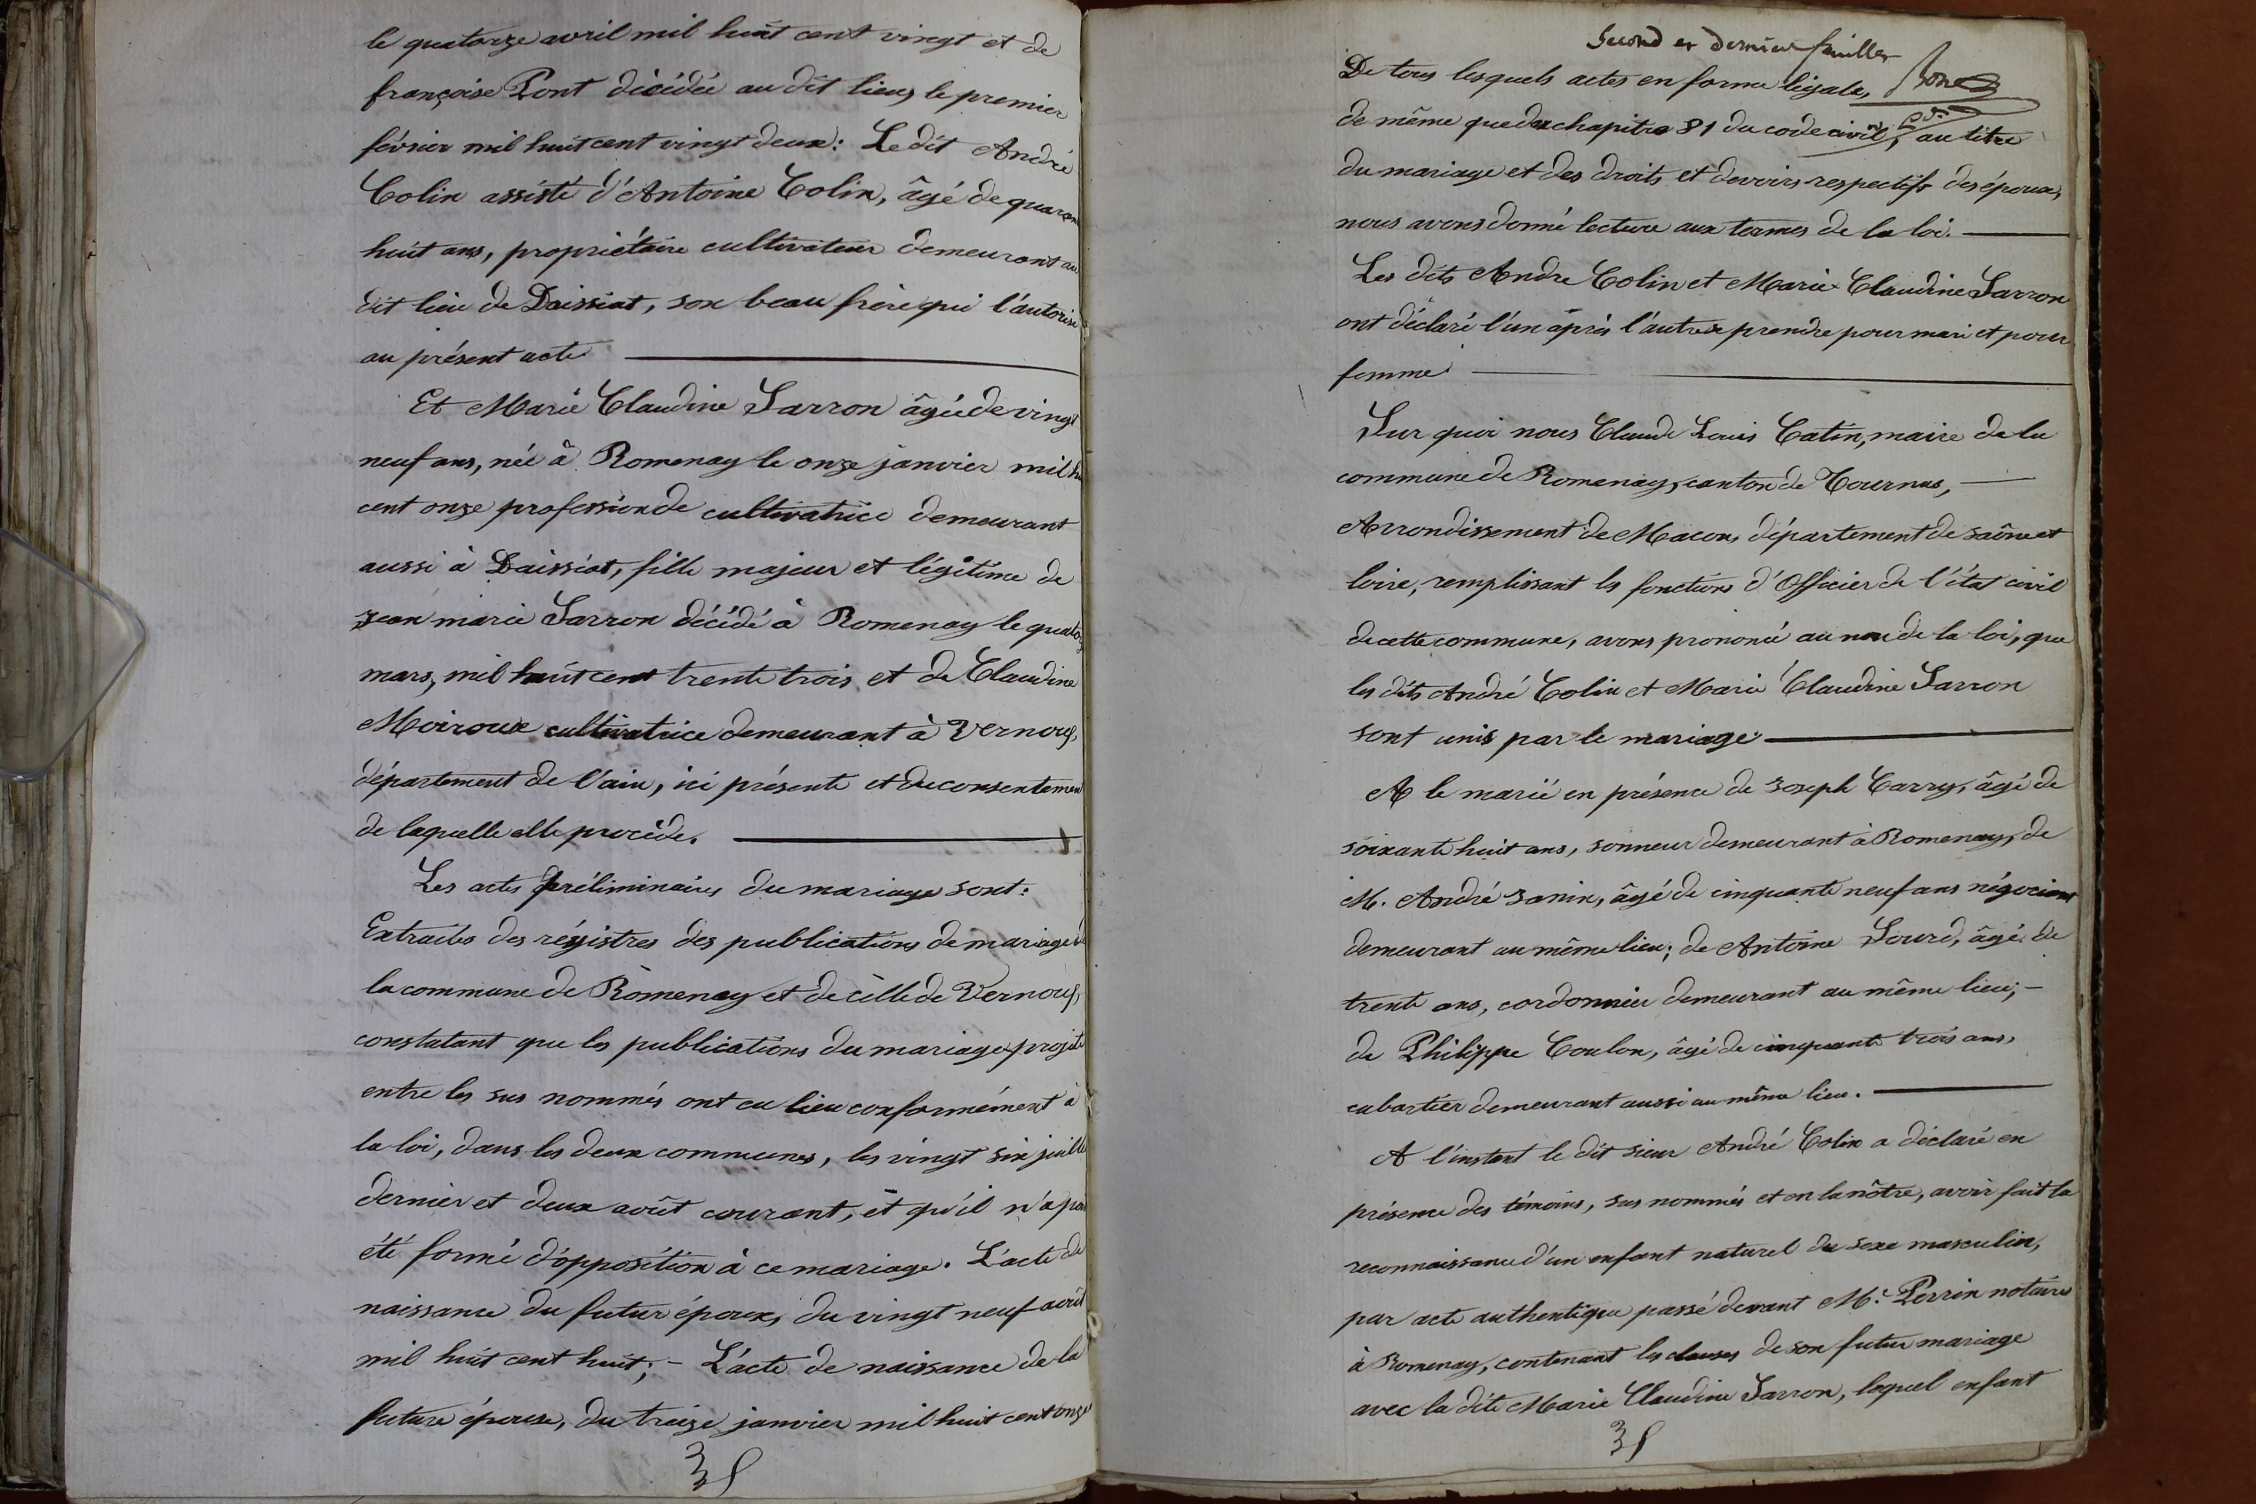 le quatorze avril mil huit cent vingt et de
françoise Pont décédée au dit lieu, le premier
février mil huit cent vingt deux: Le dit André
Colin assisté d'Antoine Colin, âgé de quarante
huit ans, propriétaire cultivateur demeurant au
dit lieu de Daissiat, son beau frère qui l'autorise
au présent acte
Et Marie Claudine Sarron âgée de vingt
neuf ans, née à Romenay le onze janvier mil hui
cent onze profession de cultivatrice demeurant
aussi à Daissiat, fille majeur et légitime de
Jean marie Sarron décédé à Romenay le quatorze
mars, mil huit cent trente trois et de Claudine
Moiroux cultivatrice demeurant à Vernoux,
département de l'ain, ici présente et du consentement
de laquelle elle procède.
Les actes préliminaires du mariage sont:
Extraits des régistres des publications de mariage de
la commune de Romenay et de celle de Vernoux,
constatant que les publications du mariage projeté
entre les sus nommés ont eu lieu conformément à
la loi, dans les deux communes, les vingt six juillet
dernier et deux août courant, et qu'il n'a pas
été formé d'opposition à ce mariage. L'acte de
naissance du futur époux, du vingt neuf août
mil huit cent huit; - L'acte de naissance de la
future épouse, du treize janvier mil huit cent onze
Second et dernier feuillet
De tous lesquels actes en forme légale,
de même que du chapitre 81 du code civil, au titre
du mariage et des droits et devoirs respectifs des époux,
nous avons donné lecture aux termes de la loi.
Les dits Andre Colin et Marie Claudine Sarron
ont déclaré l'un après l'autre prendre pour mari et pour
femme
Sur quoi nous Claude Louis Catin, maire de la
commune de Romenay, canton de Tournus,
Arrondissement de Macon, département de saône et
loire, remplissant les fonctions d'Officier de l'état civil
de cette commune, avons prononcé au nom de la loi, que
les dits André Colin et Marie Claudine Sarron
sont unis par le mariage
A le marié en présence de Joseph Carry, âgé de
soixante huit ans, sonneur demeurant à Romenay, de
M. André Janin, âgé de cinquante neuf ans négociant
demeurant au même lieu; de Antoine Sourd, âgé de
trente ans, cordonnier demeurant au même lieu; -
de Philippe Coulon, âgé de cinquante trois ans,
cabartier demeurant aussi au même lieu.
A l'instant le dit sieur André Colin a déclaré en
présence des témoins, sus nommés et en la nôtre, avoir fait la
reconnaissance d'un enfant naturel du sexe masculin,
par acte authentique passé devant Me. Perrin notaire
à Romenay, contenant les clauses de son futur mariage
avec la dite Marie Claudine Sarron, lequel enfant